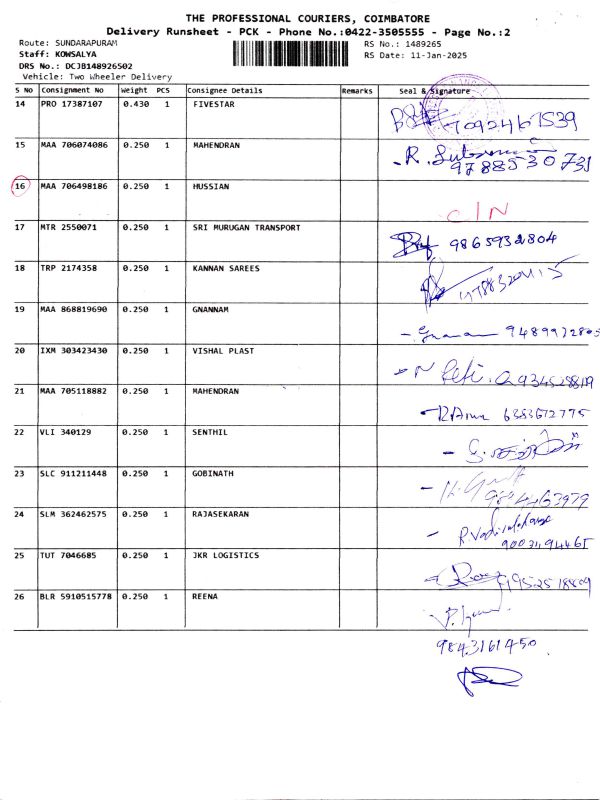 THE PROFESSIONAL COURIERS, COIMBATORE
Delivery Runsheet - PCK - Phone No.:0422-3505555 - Page No.:2
Route: SUNDARAPURAM RS No.: 1489265
Staff: KOWSALYA RS Date: 11-Jan-2025
DRS No.: DCJB148926502
Vehicle: Two Wheeler Delivery
S NO Consignment No Weight PCS Consignee Details Remarks Seal & Signature
14 PRO 17387107 0.430 1 FIVESTAR
15 MAA 706074086 0.250 1 MAHENDRAN R.
9788530731
16 MAA 706498186 0.250 1 HUSSIAN
C/N
17 MTR 2550071 0.250 1 SRI MURUGAN TRANSPORT
9865932804
18 TRP 2174358 0.250 1 KANNAN SAREES
19 MAA 868819690 0.250 1 GNANNAM
20 IXM 303423430 0.250 1 VISHAL PLAST
21 MAA 705118882 0.250 1 MAHENDRAN
6383672775
22 VLI 340129 0.250 1 SENTHIL
23 SLC 911211448 0.250 1 GOBINATH
24 SLM 362462575 0.250 1 RAJASEKARAN
25 TUT 7046685 0.250 1 JKR LOGISTICS
26 BLR 5910515778 0.250 1 REENA
9843161450